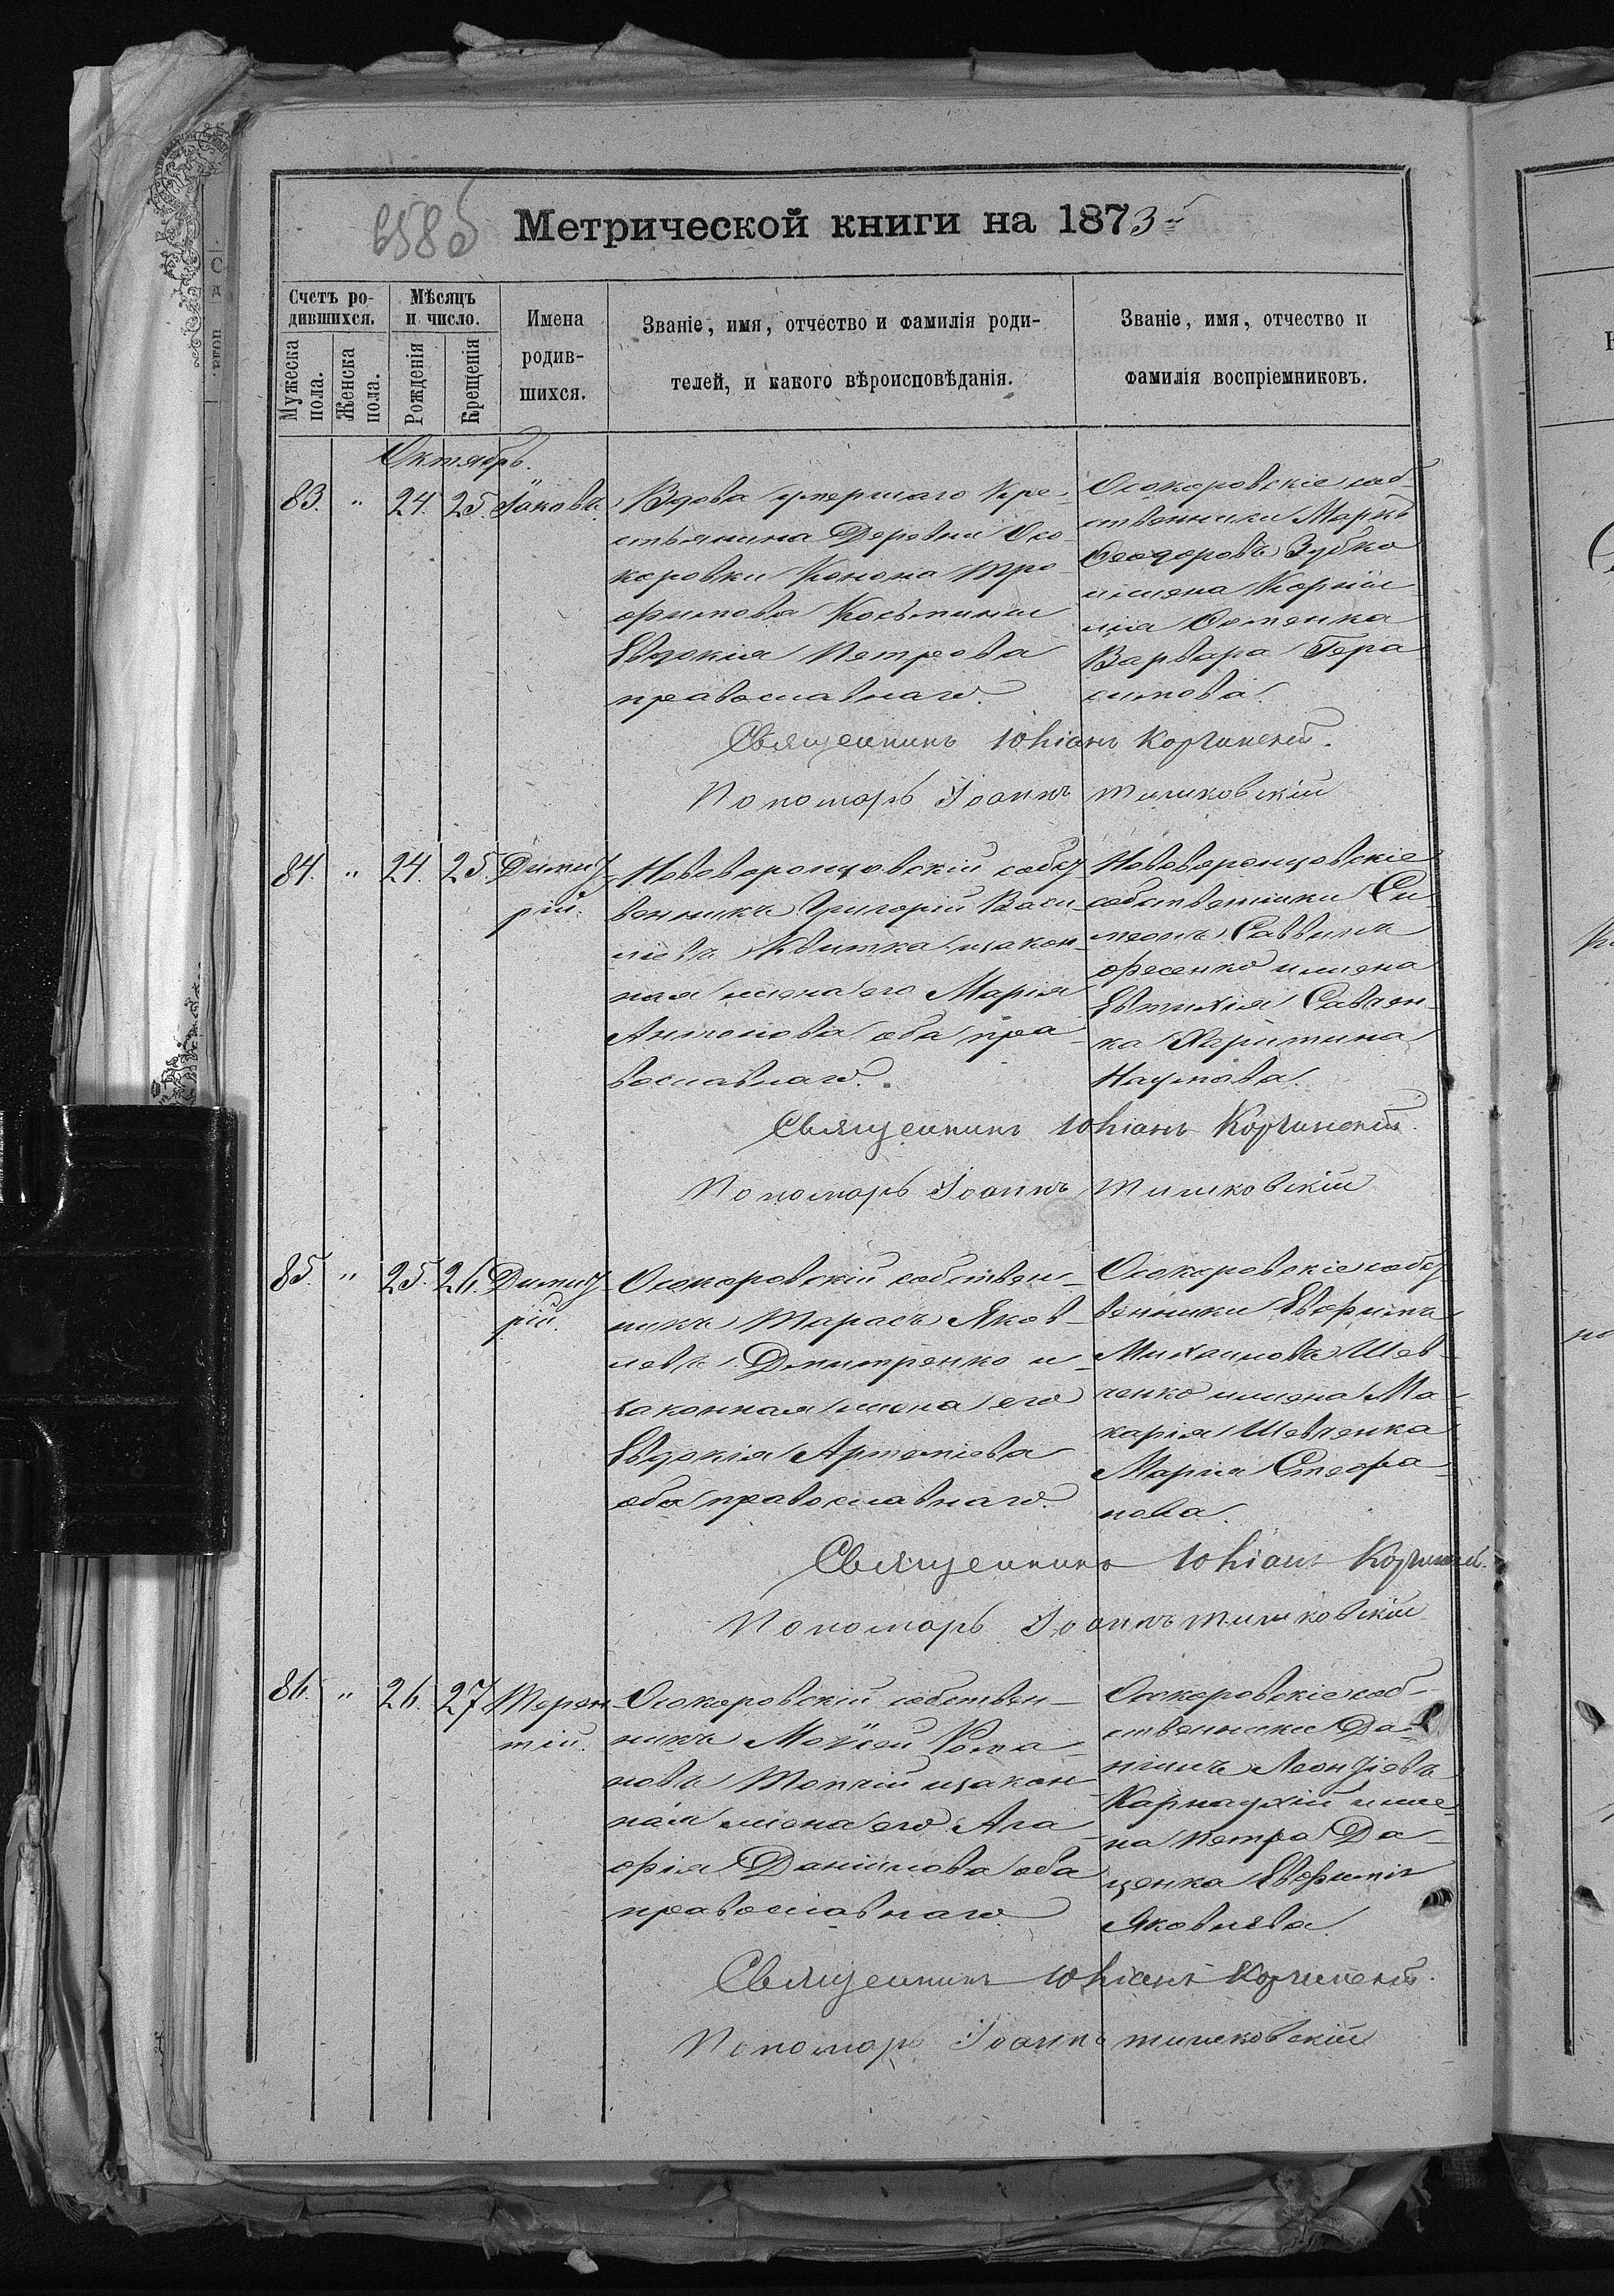 658б
Метрической книги на 1873й
Счетъ ро-
дившихся.
Мужеска
пола.
Женска
пола.
Мѣсяцъ
и число.
Рожденія
Крещенія
Имена
родив-
шихся.
Званіе, имя, отчество и фамилія роди-
телей, и какого вѣроисповѣданія.
Званіе, имя, отчество и
фамилія воспріемниковъ.
Октябрь.
83. " 24. 25. Іаковъ.
Вдова умершаго кре-
стьянина Деревни Осо-
коровки Конона Тро-
фимова Косьмини
Евдокія Петрова
православнаго.
Осокоровскіе соб-
ственники Маркъ
Ѳеодоровъ Зубко
и жена Корни-
лія
Варвара Гера-
симова.
Священникъ Юліанъ Корчинскій.
Пономарь Іоаннъ Тишковскій
84. " 24. 25. Димит-
рій.
Нововоронцовскій собст-
венникъ Григорій Васи-
ліевъ Квитка и закон-
ная жена его Марія
Антонова оба пра-
вославнаго.
Нововоронцовскіе
собственники Си-
меонъ Саввинъ
и жена
Евтихія Савчен-
ка Харитина
Наумова.
Священникъ Юліанъ Корчинскій.
Пономарь Іоаннъ Тишковскій
85. " 25. 26. Димит-
рій.
Осокоровскій собствен-
никъ Тарасъ Яков-
левъ Дмитренко и
законная жена его
Евдокія Артеміева
оба православнаго.
Осокоровскіе собст-
венники Евфимъ
Михаиловъ Шев-
ченко и жена Ма-
карія Шевченка
Марія Стефа-
нова.
Священникъ Юліанъ Корчинск.
Пономарь Іоаннъ Тишковскій
86. " 26. 27. Терен-
тій.
Осокоровскій собствен-
никъ Моѵсей Рома-
новъ Топчій и закон-
ная жена его Ага-
фія Даніилова оба
православнаго
Осокоровскіе соб-
ственники Да-
ніилъ Леонтіевъ
Карнаухій и же-
на Петра Да-
ценка Евфимія
Яковлева.
Священникъ Юліанъ Корчинскій.
Пономарь Іоаннъ Тишковскій